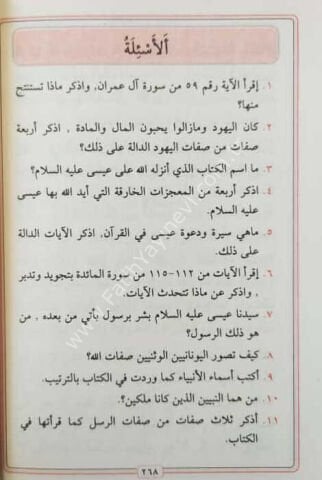 اَلْأَسْئِلَةُ
١. إقرأ الآية رقم ٥٩ من سورة آل عمران، واذكر ماذا تستنتج
منها؟
٢. كان اليهود ومازالوا يحبون المال والمادة , اذكر أربعة
صفات من صفات اليهود الدالة على ذلك؟
٣. ما اسم الكتاب الذي أنزله الله على عيسى عليه السلام؟
٤. اذكر أربعة من المعجزات الخارقة التي أيد الله بها عيسى
عليه السلام.
٥. ماهي سيرة ودعوة عيسى في القرآن، اذكر الآيات الدالة
على ذلك.
٦. إقرأ الآيات من ١١٢-١١٥ من سورة المائدة بتجويد وتدبر
, واذكر عن ماذا تتحدث الآيات.
٧. سيدنا عيسى عليه السلام بشر برسول يأتي من بعده , من
هو ذلك الرسول؟
٨. كيف تصور اليونانيين الوثنيين صفات الله؟
٩. أكتب أسماء الأنبياء كما وردت في الكتاب بالترتيب.
١٠. من هما النبيين الذين كانا ملكين؟
١١. أذكر ثلاث صفات من صفات الرسل كما قرأتها في
الكتاب.
٢٦٨